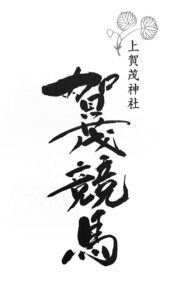 上賀茂神社
賀茂競馬